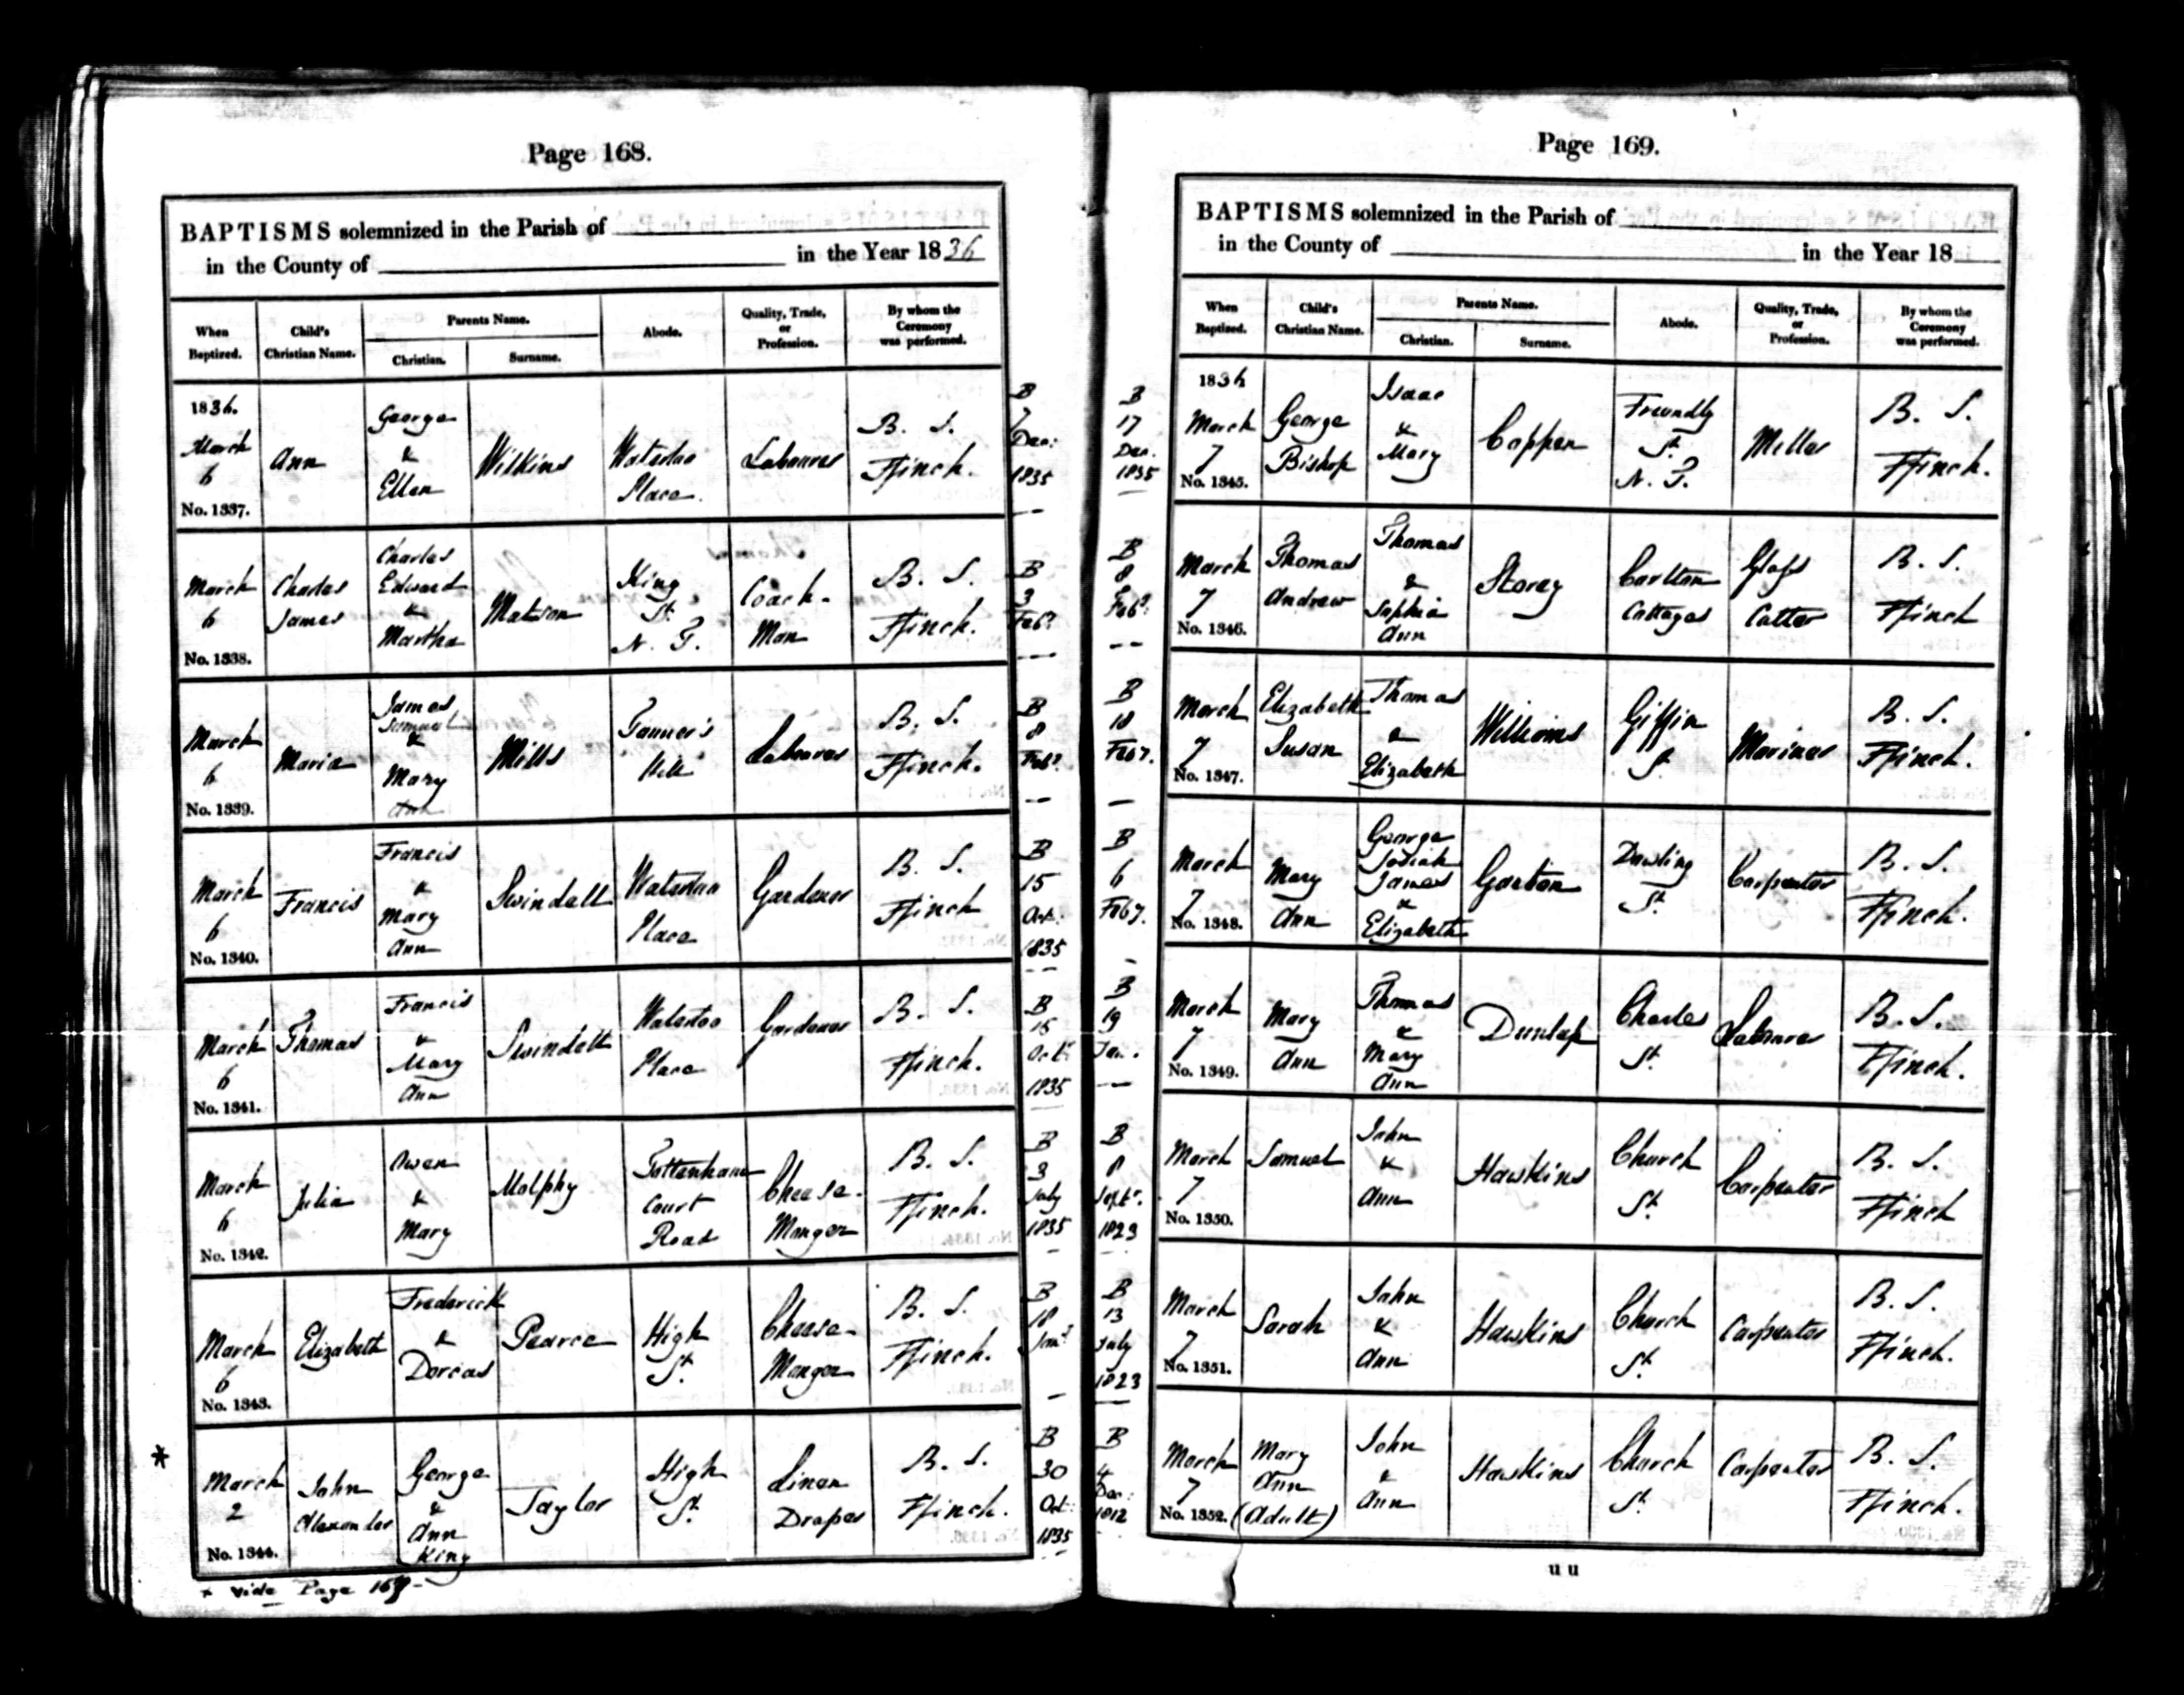 Page 168.
BAPTISMS solemnized in the Parish of
in the County of in the Year 1836
When Baptized. Child's Christian Name. Parents Name. Christian. Surname. Abode. Quality, Trade, or Profession. By whom the Ceremony was performed.
1836. March 6 No. 1337. Ann George & Ellen Wilkins Waterloo Place. Labourer B. S. Ffinch. B 7 Dec: 1835
March 6 No. 1338. Charles James Charles Edward & Martha Matson King St. N. T. Coach-Man B. S. Ffinch. B 3 Feby.
March 6 No. 1339. Maria James Samuel & Mary Ann Mills Tanner's Hill Labourer B. S. Ffinch. B 8 Feby.
March 6 No. 1340. Francis Francis & Mary Ann Swindell Waterloo Place Gardener B. S. Ffinch B 15 Oct: 1835
March 6 No. 1341. Thomas Francis & Mary Ann Swindell Waterloo Place Gardener B. S. Ffinch. B 15 Octr 1835
March 6 No. 1342. Julia Owen & Mary Molphy Tottenham Court Road Cheese-Monger B. S. Ffinch. B 3 July 1835
March 6 No. 1343. Elizabeth Frederick & Dorcas Pearce High St. Cheese-Monger B. S. Ffinch. B 18 Jany
* March 2 No. 1344. John Alexander George & Ann King Taylor High St. Linen Draper B. S. Ffinch. B 30 Oct: 1835
* vide Page 169-
Page 169.
BAPTISMS solemnized in the Parish of
in the County of in the Year 18
When Baptized. Child's Christian Name. Parents Name. Christian. Surname. Abode. Quality, Trade, or Profession. By whom the Ceremony was performed.
B 17 Dec. 1835 1836 March 7 No. 1345. George Bishop Isaac & Mary Copper Friendly St. N. T. Miller B. S. Ffinch.
B 8 Feby. March 7 No. 1346. Thomas Andrew Thomas & Sophia Ann Storey Carlton Cottages Glass Cutter B. S. Ffinch
B 18 Feby. March 7 No. 1347. Elizabeth Susan Thomas & Elizabeth Williams Giffin St Mariner B. S. Ffinch.
B 6 Feby. March 7 No. 1348. Mary Ann George Josiah James & Elizabeth Garton Dowling St. Carpenter B. S. Ffinch.
B 19 Jan. March 7 No. 1349. Mary Ann Thomas & Mary Ann Dunlap Charles St. Labourer B. S. Ffinch.
B 8 Septr. 1823 March 7 No. 1350. Samuel John & Ann Hawkins Church St. Carpenter B. S. Ffinch
B 13 July 1823 March 7 No. 1351. Sarah John & Ann Hawkins Church St. Carpenter B. S. Ffinch.
B 4 Dec: 1812 March 7 No. 1352. Mary Ann (Adult) John & Ann Hawkins Church St. Carpenter B. S. Ffinch.
u u